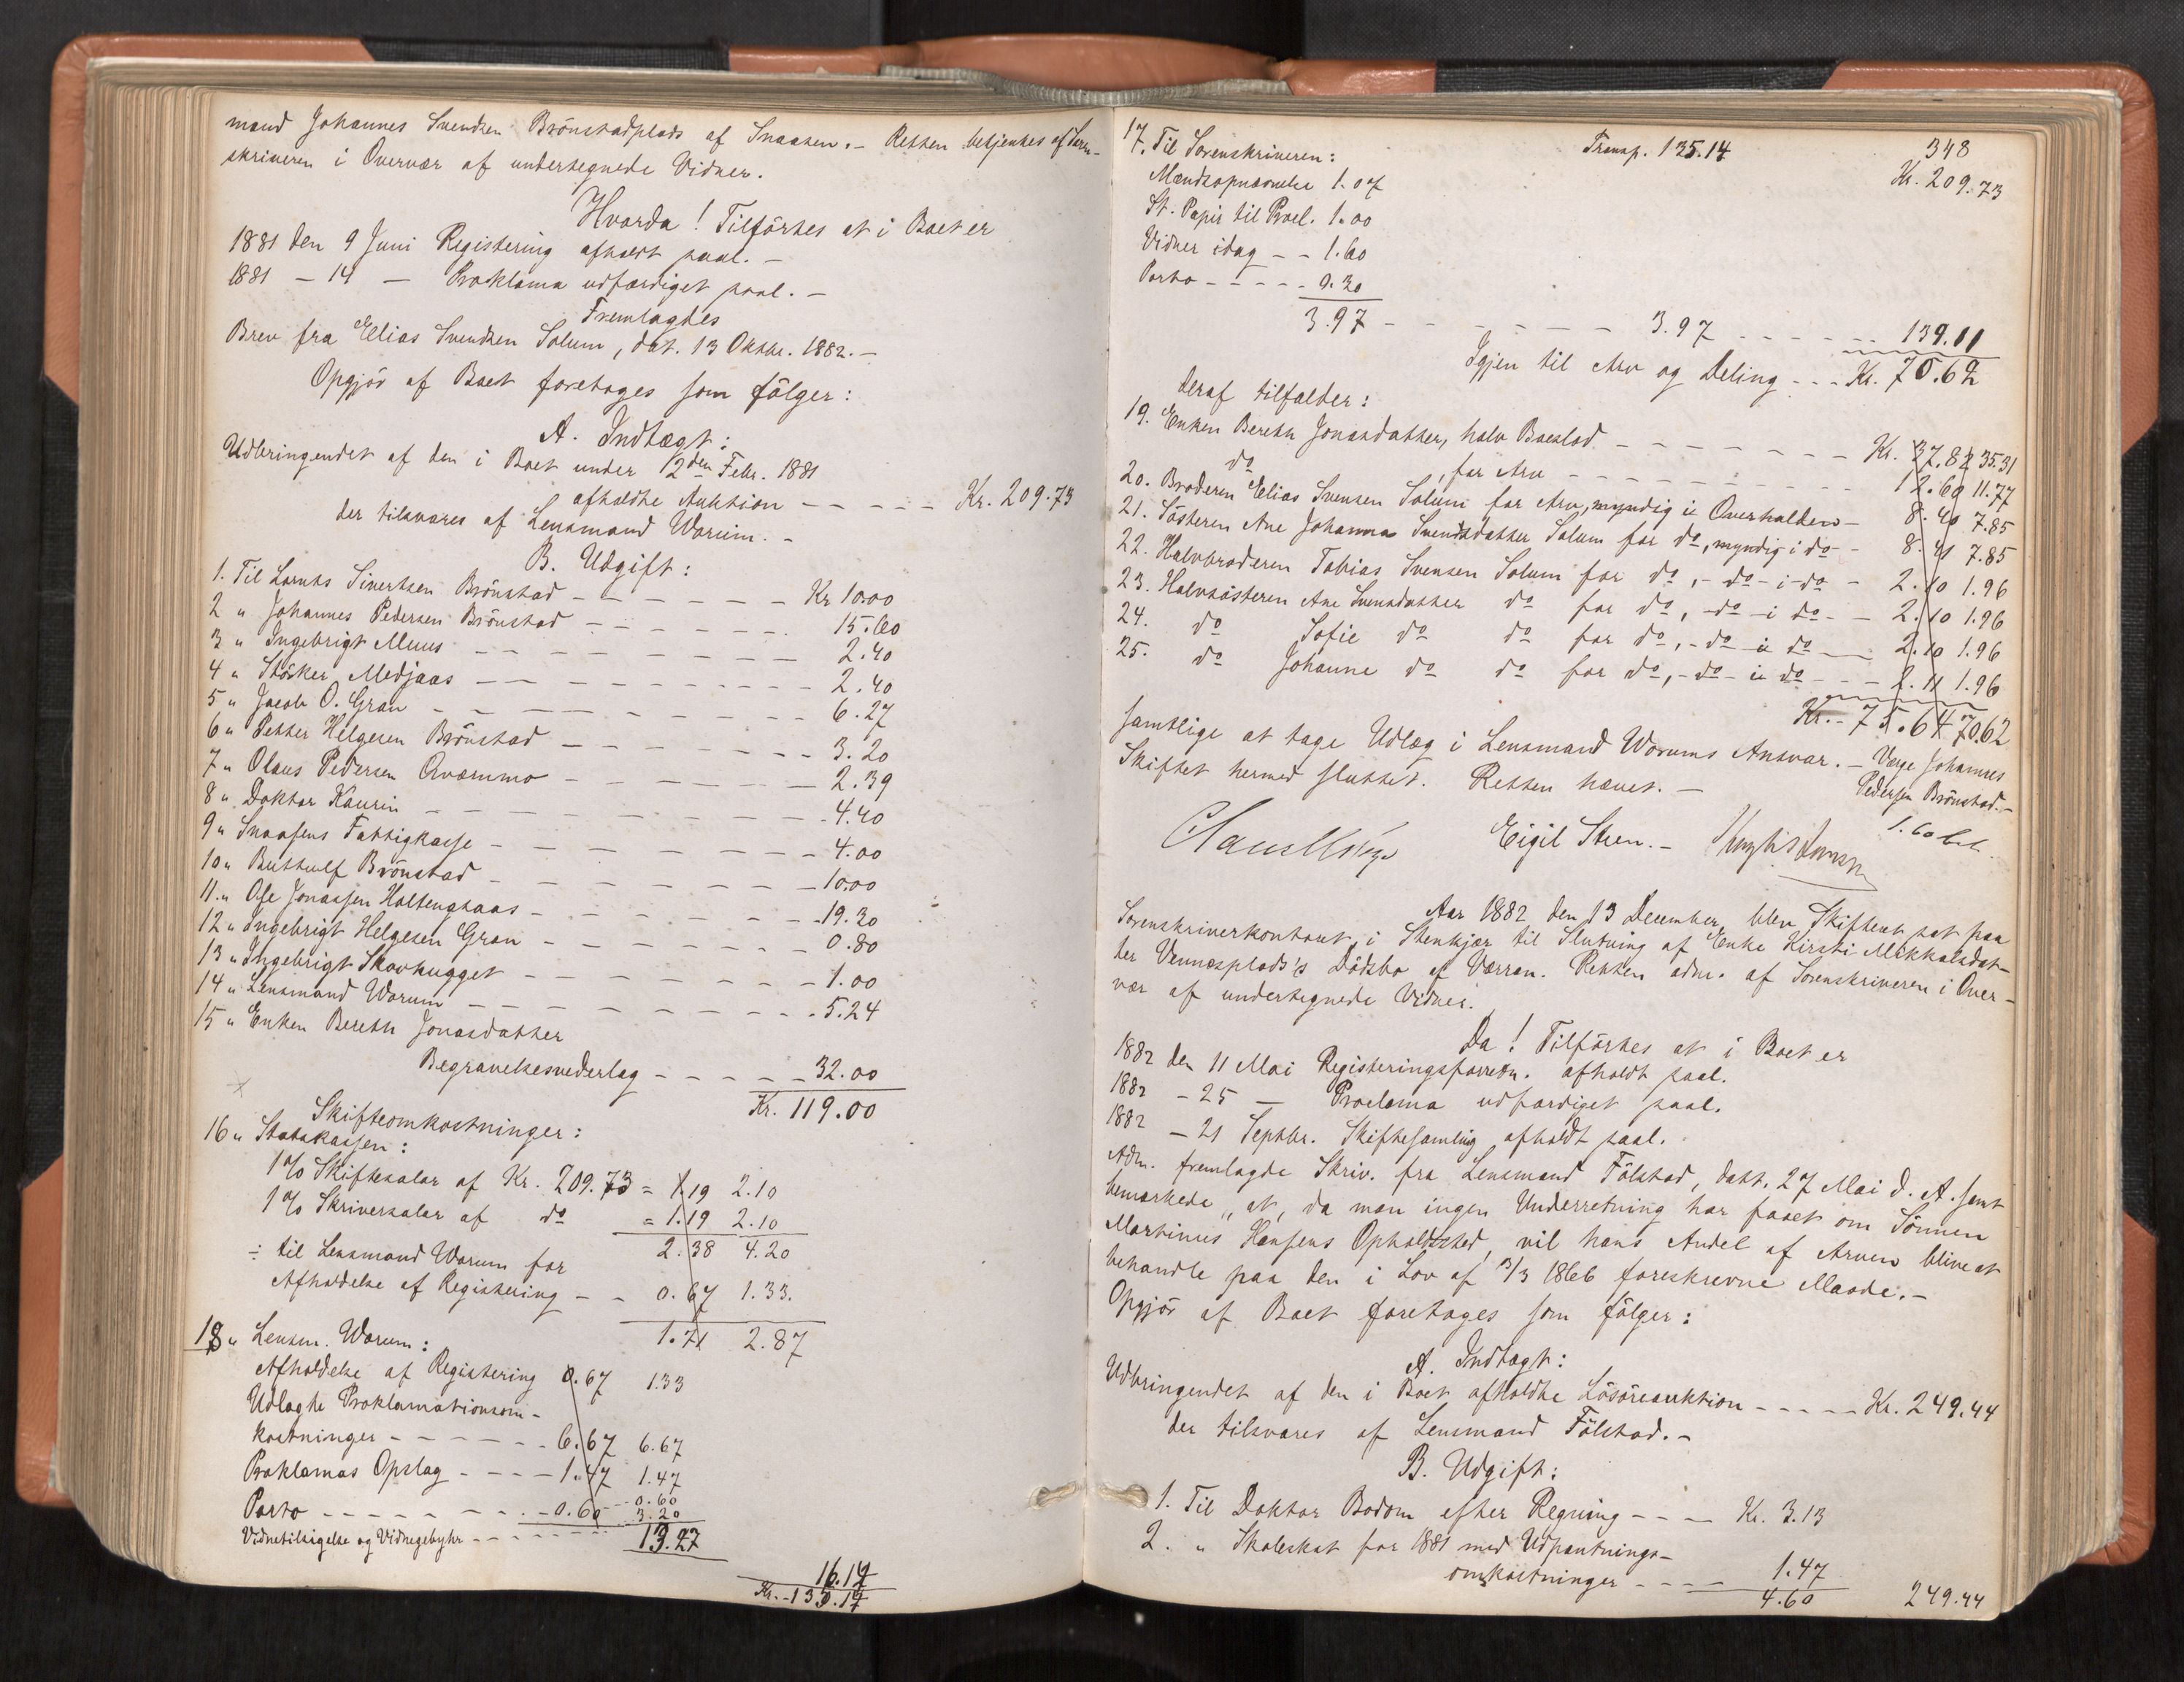 mand Johannes Svendsen Brönstadplads af Snaasen. - Retten betjentes af Soren-
skriveren i Overvær af undertegnede Vidner.
Hvorda! Tilförtes at i Boet er
1881 den 9 Juni Registering afholdt paal. -
1881 - 14 - Proklama udfærdiget paal. -
Fremlagdes
Brev fra Elias Svendsen Solum, dat. 13 Oktbr. 1882. -
Opgjör af Boet foretages som fölger:
A. Indtægt:
Udbringendet af den i Boet under 12den Febr. 1881
afholdte Auktion - - - - - Kr. 209.73
der tilsvares af Lensmand Worum. -
B. Udgift:
1. Til Lornts Sivertsen Brönstad - - - - - - Kr 10.00
2 " Johannes Pedersen Brönstad - - - - - - 15.60
3 " Ingebrigt Muus - - - - - - - - 2.40
4 " Stösker Medjaas - - - - - - - - - 2.40
5 " Jacob O. Gran - - - - - - - - - 6.27
6 " Petter Helgesen Brönstad - - - - - - 3.20
7 " Olaus Pedersen Qværnmo - - - - - - 2.39
8 " Doktor Kaurin - - - - - - - - - 4.40
9 " Snaasens Fattigkasse - - - - - - - 4.00
10 " Buttulf Brönstad - - - - - - - 10.00
11. " Ole Jonassen Holtenghaas - - - - - - 19.30
12 " Ingebrigt Helgesen Gran - - - - - - 0.80
13 " Ingebrigt Skavhugget - - - - - - - 1.00
14 " Lensmand Worum - - - - - - - - 5.24
15 " Enken Bereth Jonasdatter
Begravelsesvederlag - - - - - 32.00
Kr. 119.00
Skifteomkostninger:
16 " Statskassen:
1% Skiftesalær af Kr. 209.73 = 1.19 2.10
1% Skriversalær af do = 1.19 2.10
2.38 4.20
÷ til Lensmand Worum for
Afholdelse af Registering - - 0.67 1.33.
1.71 2.87
18 " Lensm. Worum:
Afholdelse af Registering 0.67 1.33
Udlagte Proklamationsom-
kostninger - - - - - - 6.67 6.67
Proklamas Opslag - - - - 1.47 1.47
Porto - - - - - - - - 0.60 - - 0.60
3.20
Vidnetilsigelse og Vidnegebyhr - - - - - - 13.27
16.14
Kr. - 135.14
348
17. Til Sorenskriveren: Transp. 135.14 Kr. 209.73
Mændsopnævnelse 1.07
St. Papir til Procl. 1.00
Vidner idag - - 1.60
Porto - - - - - 0.30
3.97 - - - - - - 3.97 - - - - - - 139.11
Igjen til Arv og Deling - - - Kr. 70.62
deraf tilfalder:
19. Enken Bereth Jonasdatter, halv Boeslod - - - - - - - Kr. 37.82 35.31
do , for Arv - - - - - - - - - - 12.60 11.77
20. Broderen Elias Svensen Solum for Arv, myndig i Overhalden - 8.40 7.85
21. Sösteren Ane Johanna Svendsdatter Solum for do, myndig i do - - 8.41 7.85
22. Halvbroderen Tobias Svensen Solum for do, - do - i - do - 2.10 1.96
23. Halvsösteren Ane Svensdatter do for do, - do - i do - - 2.10 1.96
24. do Sofie do do for do, - do i do - - 2.10 1.96
25. do Johanne do do for do, - do - i do - - - 2.11 1.96
Kr. - 75.64 70.62
samtlige at tage Udlæg i Lensmand Worums Ansvar. - Værge Johannes
Pedersen Brönstad. -
Skiftet hermed sluttet. Retten hævet. -
1.60 bet.
Eigil Stren. -
Aar 1882 den 13 December blev Skifteret sat paa
Sorenskriverkontoret i Stenkjær til Slutning af Enke Kirsti Mikkalsdat-
ter Vennesplads's Dödsbo af Værran. Retten adm. af Sorenskriveren i Over-
vær af undertegnede Vidner.
Da! Tilförtes at i Boet er
1882 den 11 Mai Registeringsforretn. afholdt paal.
1882 - 25 - Proclama udfærdiget paal.
1882 - 21 Septbr. Skiftesamling afholdt paal.
Adm. fremlagde Skriv. fra Lensmand Fölstad, datt. 27 Mai d. A. samt
bemærkede, at, da man ingen Underretning har faaet om Sönnen
Martinus Hansens Opholdssted, vil hans Andel af Arven blive at
behandle paa den i Lov af 13/3 1866 foreskrevne Maade. -
Opgjör af Boet foretages som fölger:
A. Indtægt:
Udbringendet af den i Boet afholdte Lösöreauktion - - - - - Kr. 249.44
der tilsvares af Lensmand Fölstad. -
B. Udgift:
1. Til Doktor Bodom efter Regning - - - - Kr. 3.13
2. " Skoleskat for 1881 med Udpantnings-
omkostninger - - - - 1.47
4.60 249.44